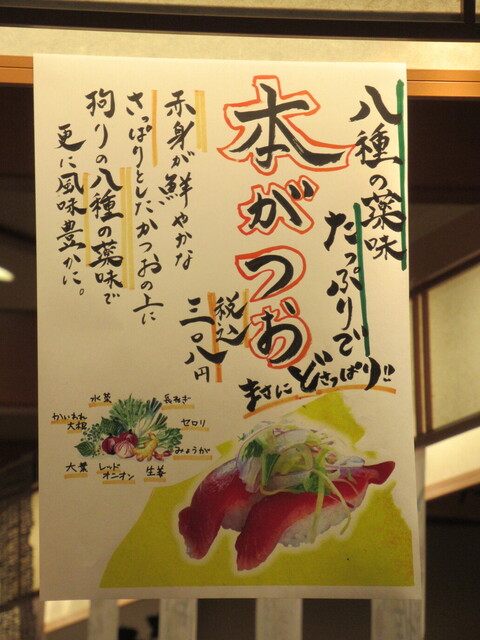 八種の薬味
たっぷりで
本がつお
まさにどさっぱり!!
税込
三〇八円
赤身が鮮やかな
さっぱりとしたかつおの上に
拘りの八種の薬味で
更に風味豊かに。
水菜
長ねぎ
かいわれ
大根
セロリ
みょうが
大葉
レッド
オニオン
生姜